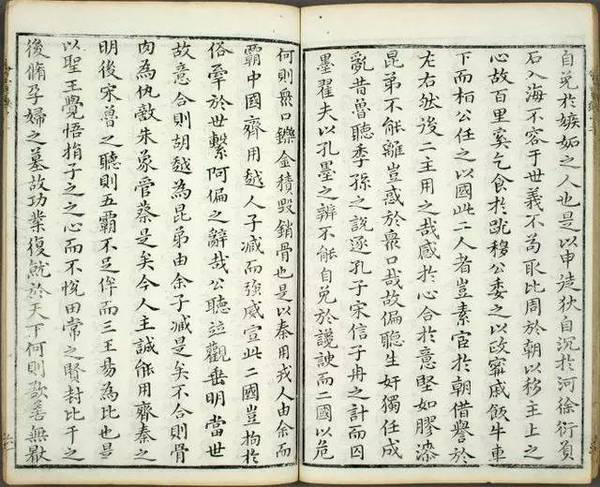 自免於嫉妬之人也是以申徒狄自沉於河徐衍負
石入海不容于世義不為取比周於朝以移主上之
心故百里奚乞食於路穆公委之以政甯戚飯牛車
下而桓公任之以國此二人者豈素宦於朝借譽於
左右然後二主用之哉感於心合於意堅如膠漆
昆弟不能離豈惑於衆口哉故偏聽生奸獨任成
亂昔魯聽季孫之說逐孔子宋信子冉之計而囚
墨翟夫以孔墨之辨不能自免於讒諛而二國以危
何則衆口鑠金積毀銷骨也是以秦用戎人由余而
霸中國齊用越人子臧而強威宣此二國豈拘於
俗牽於世繫阿偏之辭哉公聽竝觀垂明當世
故意合則胡越為昆弟由余子臧是矣不合則骨
肉為仇敵朱象管蔡是矣今人主誠能用齊秦之
明後宋魯之聽則五霸不足侔而三王易為比也是
以聖王覺悟捐子之之心而不悅田常之賢封比干之
後脩孕婦之墓故功業復就於天下何則欲善無厭